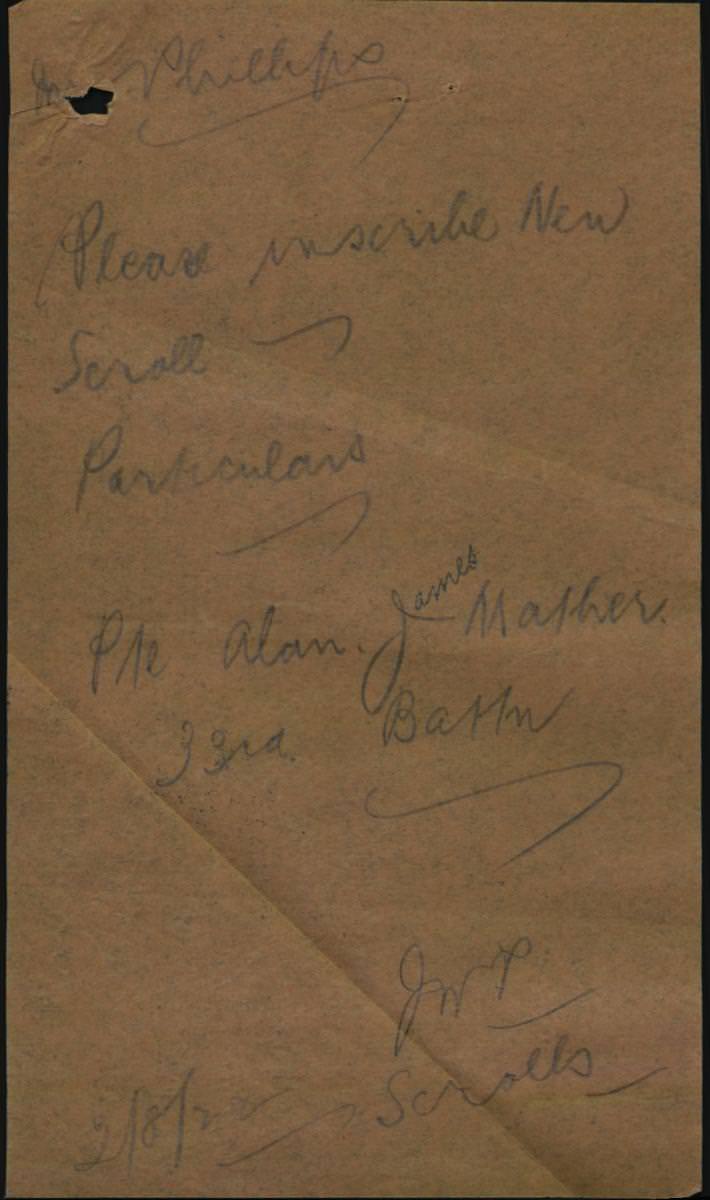 Mr Phillips
Please inscribe New
Scroll
Particulars
Pte Alan. James Mather.
33rd. Battn
JWP
Scrolls
2/8/22